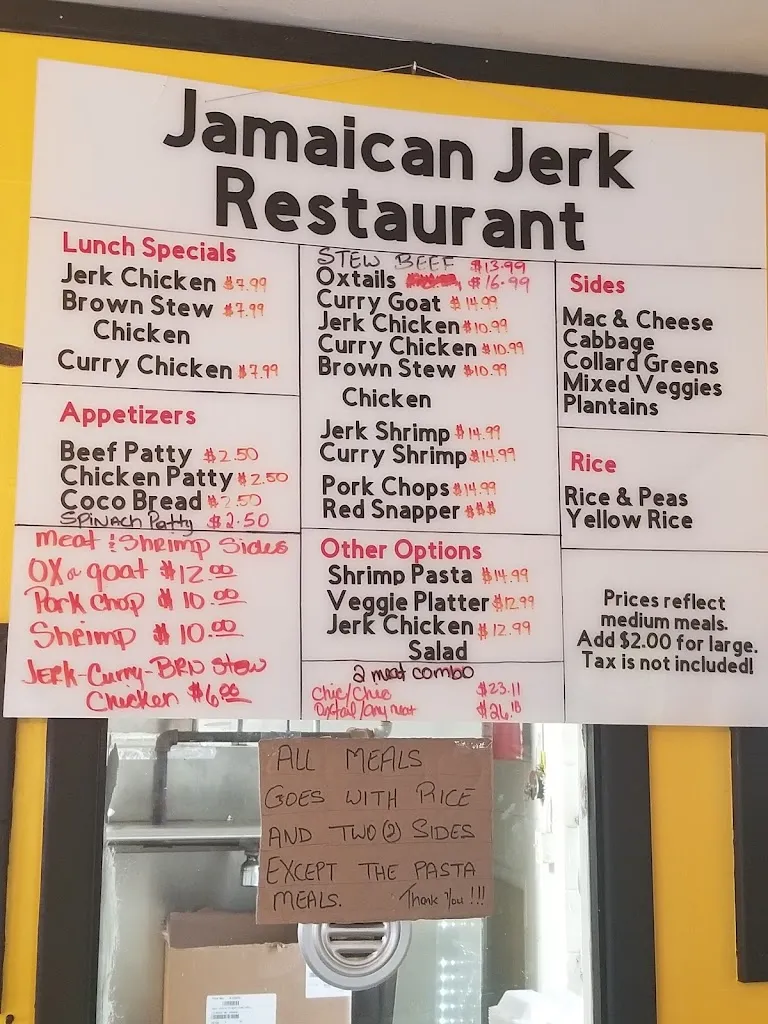 Jamaican Jerk
Restaurant
Lunch Specials
Jerk Chicken $7.99
Brown Stew $7.99
Chicken
Curry Chicken $7.99
Appetizers
Beef Patty $2.50
Chicken Patty $2.50
Coco Bread $2.50
Spinach Patty $2.50
Meat & Shrimp Sides
OX or goat $12.00
Pork Chop $10.00
Shrimp $10.00
JERK-Curry-BRN Stew
Chicken $6.00
STEW BEEF $13.99
Oxtails $16.99
Curry Goat $14.99
Jerk Chicken $10.99
Curry Chicken $10.99
Brown Stew $10.99
Chicken
Jerk Shrimp $14.99
Curry Shrimp $14.99
Pork Chops $14.99
Red Snapper $$$
Other Options
Shrimp Pasta $14.99
Veggie Platter $12.99
Jerk Chicken $12.99
Salad
2 meat combo
Chic/Chic $23.11
Oxtail/any meat $26.18
Sides
Mac & Cheese
Cabbage
Collard Greens
Mixed Veggies
Plantains
Rice
Rice & Peas
Yellow Rice
Prices reflect
medium meals.
Add $2.00 for large.
Tax is not included!
ALL MEALS
GOES WITH RICE
AND TWO (2) SIDES
EXCEPT THE PASTA
MEALS. Thank You!!!